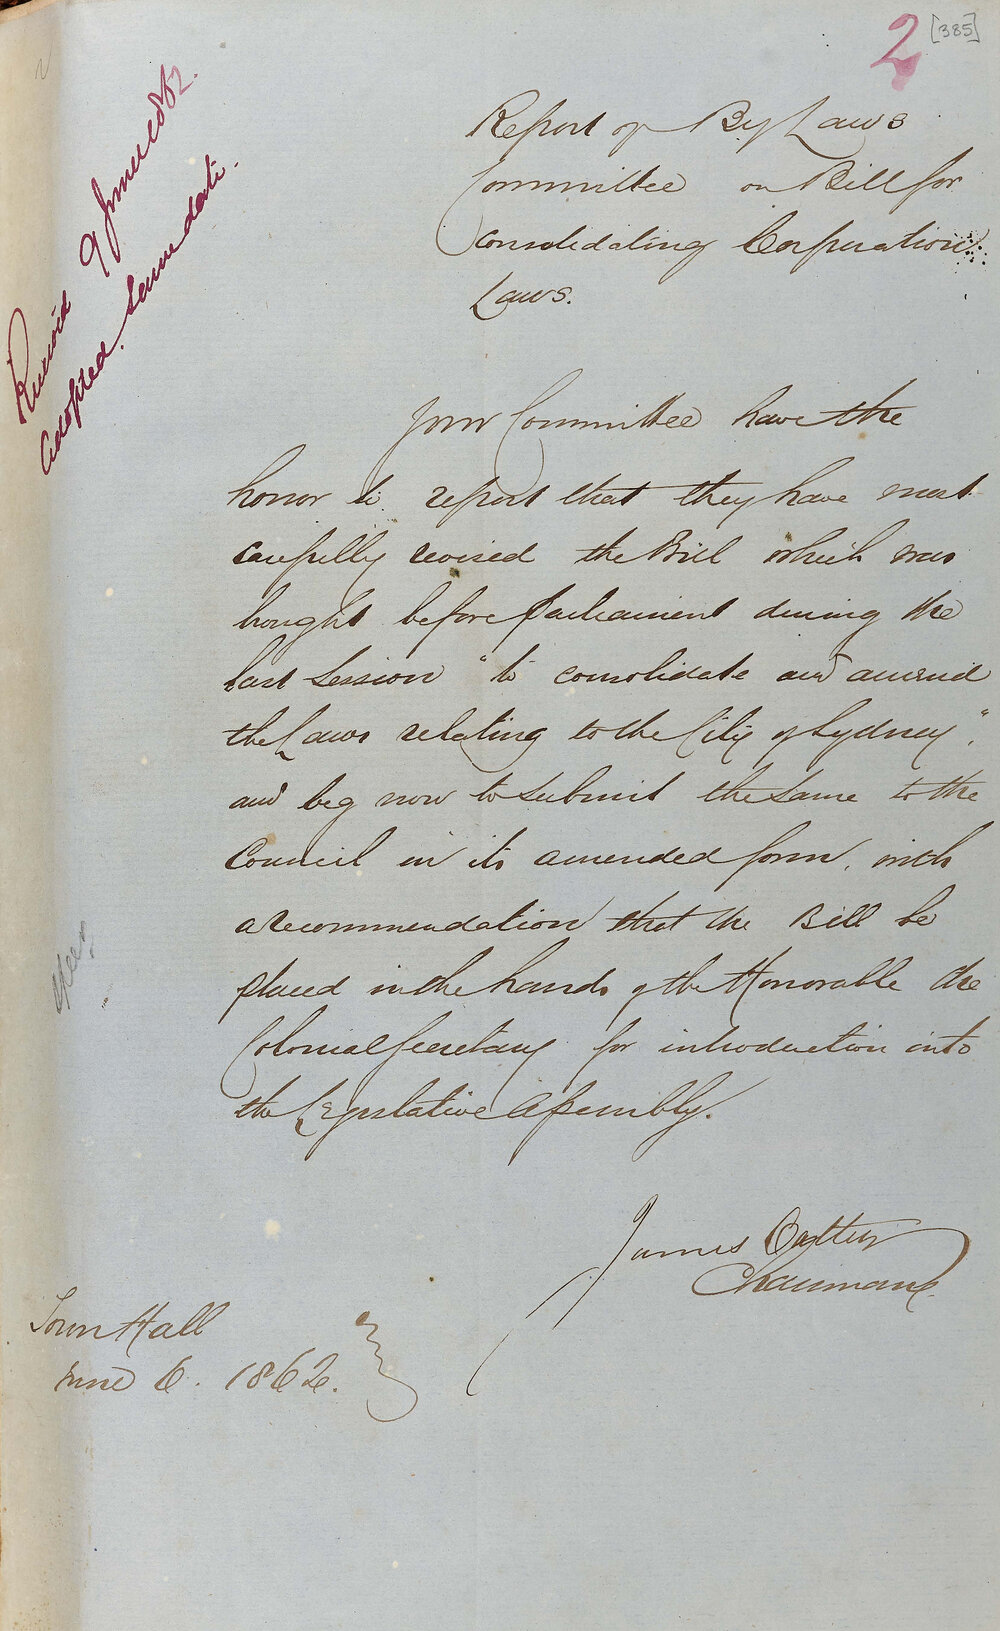 2 [385]
Received 9 June 1862.
Adopted. Same date.
Report of By Laws
Committee on Bill for
Consolidating Corporation
Laws.
Your Committee have the
honor to report that they have most
carefully revised the Bill which was
bought before Parliament during the
last Session "to consolidate and amend
the Laws relating to the City of Sydney",
and beg now to submit the same to the
Council in its amended form, with
a recommendation that the Bill be
placed in the hands of the Honorable the
Colonial Secretary for introduction into
the Legislative Assembly.
James Oatley
Chairman
Town Hall
June 6. 1862.